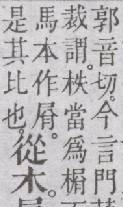 郭音切。今言門
裁謂。柣當爲楣
馬本作屑。
是其比也。從木。